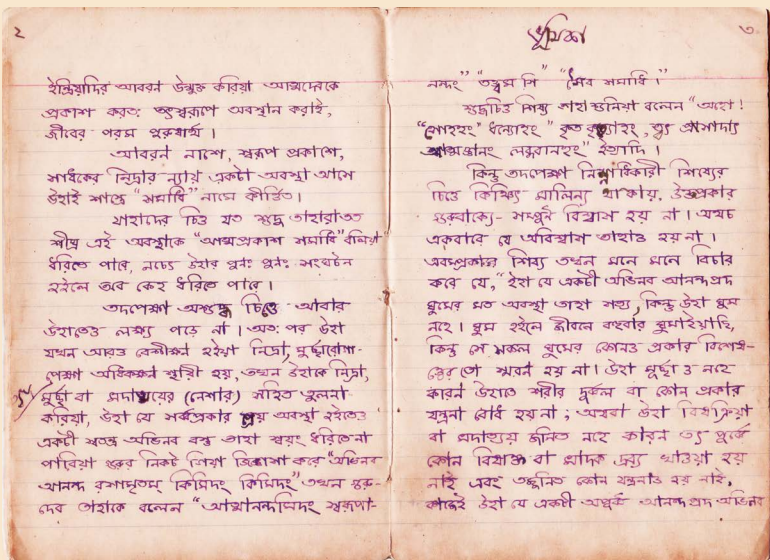 ২
ইন্দ্রিয়াদির আবরন উন্মুক্ত করিয়া আত্মদেবকে
প্রকাশ করত: তৎস্বরূপে অবস্থান করাই,
জীবের পরম পুরুষার্থ।
আবরন নাশে, স্বরূপ প্রকাশে,
সাধকের নিদ্রার ন্যায় একটা অবস্থা আসে
উহাই শাস্ত্রে “সমাধি” নামে কীর্ত্তিত।
যাহাদের চিত্ত যত শুদ্ধ তাহারা তত
শীঘ্র এই অবস্থাকে “আত্মপ্রকাশ সমাধি” বলিয়া
ধরিতে পারে, নচেৎ উহার পুনঃ পুনঃ সংঘটন
হইলে তবে কেহ ধরিতে পারে।
তদপেক্ষা অশুদ্ধ চিত্তে আবার
উহাতেও লক্ষ্য পড়ে না। অত: পর উহা
যখন আরও বেশীক্ষন হইয়া নিদ্রা, মূর্চ্ছারোগা-
পেক্ষা অধিকক্ষন স্থায়ী হয়, তখন উহাকে নিদ্রা,
মূর্চ্ছা বা (নেশার) সহিত তুলনা
করিয়া, উহা যে সর্ব্বপ্রকার অবস্থা হইতেও
একটী স্বতন্ত্র অভিনব বস্তু তাহা স্বয়ং ধরিতে না
পারিয়া গুরুর নিকট গিয়া জিজ্ঞাসা করে “অভিনব
আনন্দ রসামৃতম্ কিমিদং কিমিদং” তখন গুরু-
দেব তাহাকে বলেন “আত্মানন্দমিদং স্বরূপা-
ভূমিকা
৩
নন্দং” “তত্ত্বমসি” “সৈব সমাধি।”
শুদ্ধচিত্ত শিষ্য তাহা শুনিয়া বলেন “অহো!
“সোহহং” ধন্যোহং” কৃত কৃত্যোহং,
লব্ধবানহং” ইত্যাদি।
কিন্তু তদপেক্ষা নিম্নাধিকারী শিষ্যের
চিত্তে কিঞ্চিৎ মালিন্য থাকায়, উক্তপ্রকার
গুরুবাক্যে- সম্পূর্ন বিশ্বাস হয় না। অথচ
একবারে যে অবিশ্বাস তাহাও হয় না।
এবম্প্রকার শিষ্য তখন মনে মনে বিচার
করে যে, “ইহা যে একটী অভিনব আনন্দপ্রদ
ঘুমের মত অবস্থা তাহা সত্য, কিন্তু উহা ঘুম
নহে। ঘুম হইলে জীবনে বহুবার ঘুমাইয়াছি,
কিন্তু সে সকল ঘুমের কোনও প্রকার বিশেষ-
ত্বের তো স্মরন হয় না। উহা মূর্চ্ছাও নহে
কারন উহাতে শরীর দুর্ব্বল বা কোন প্রকার
যন্ত্রনা বোধ হয় না; অথবা উহা বিষক্রিয়া
বা মদাত্যয় জনিত নহে কারন তৎ পূর্ব্বে
কোন বিষাক্ত বা মাদক দ্রব্য খাওয়া হয়
নাই এবং তজ্জনিত কোন যন্ত্রনাও হয় নাই,
কাজেই উহা যে একটী অপূর্ব্ব আনন্দপ্রদ অভিনব